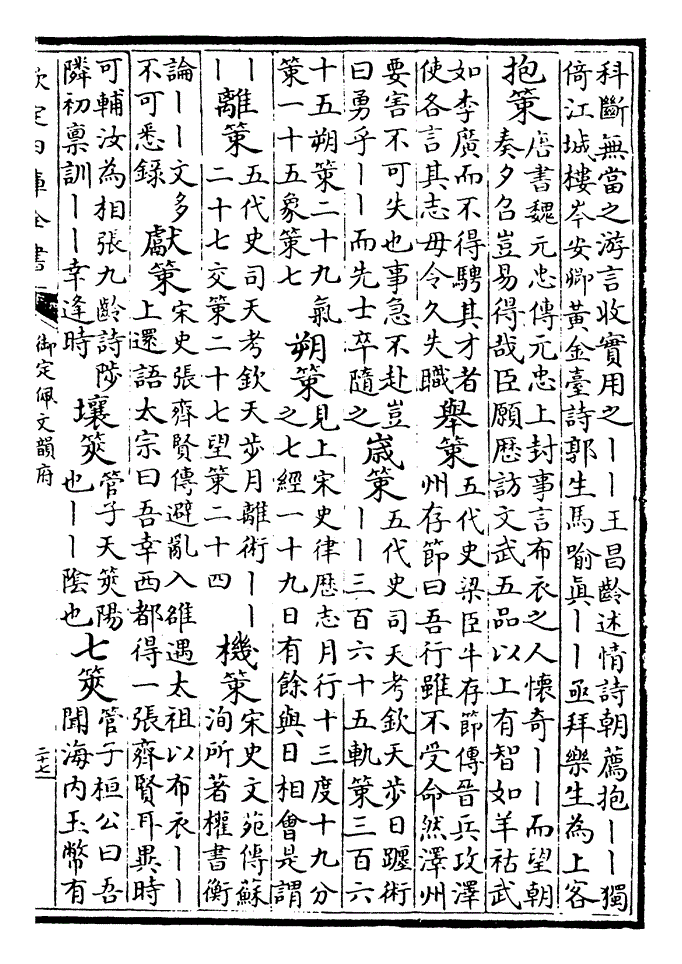 科斷無當之游言收實用之丨丨王昌齡述情詩朝薦抱丨丨獨
倚江城樓岑安卿黃金臺詩郭生馬喻真丨丨亟拜樂生為上客
抱策
唐書魏元忠傳元忠上封事言布衣之人懷奇丨丨而望朝
奏夕召豈易得哉臣願歴訪文武五品以上有智如羊祜武
如李廣而不得騁其才者
使各言其志毋令久失職
舉策
五代史梁臣牛存節傳晉兵攻澤
州存節曰吾行雖不受命然澤州
要害不可失也事急不赴豈
曰勇乎丨丨而先士卒隨之
歳策
五代史司天考欽天步日躔術
丨丨三百六十五軌策三百六
十五朔策二十九氣
策一十五象策七
朔策
見上宋史律歴志月行十三度十九分
之七經一十九日有餘與日相會是謂
丨
丨
離策
五代史司天考欽天步月離術丨丨
二十七交策二十七望策二十四
機策
宋史文苑傳蘇
洵所著權書衡
論丨丨文多
不可悉録
獻策
宋史張齊賢傳避亂入雒遇太祖以布衣丨丨
上還語太宗曰吾幸西都得一張齊賢耳異時
可輔汝為相張九齡詩陟
隣初禀訓丨丨幸逢時
壤筴
管子天筴陽
也丨丨陰也
七筴
管子桓公曰吾
聞海内玉幣有
欽定四庫全書
御定佩文韻府
二十七